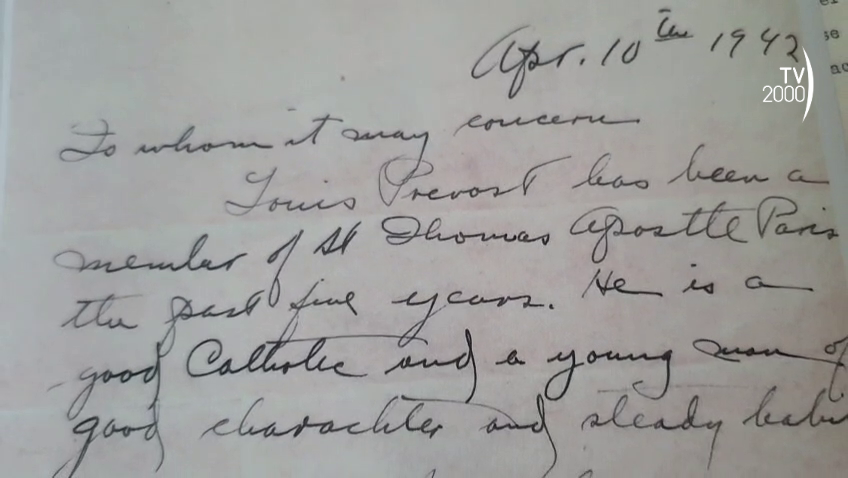 Apr. 10th 1942
To whom it may concern
Louis Prevost has been a
member of St Thomas Apostle Paris
the past five years. He is a
good Catholic and a young man of
good charachter and steady habi
TV
2000
se
ac